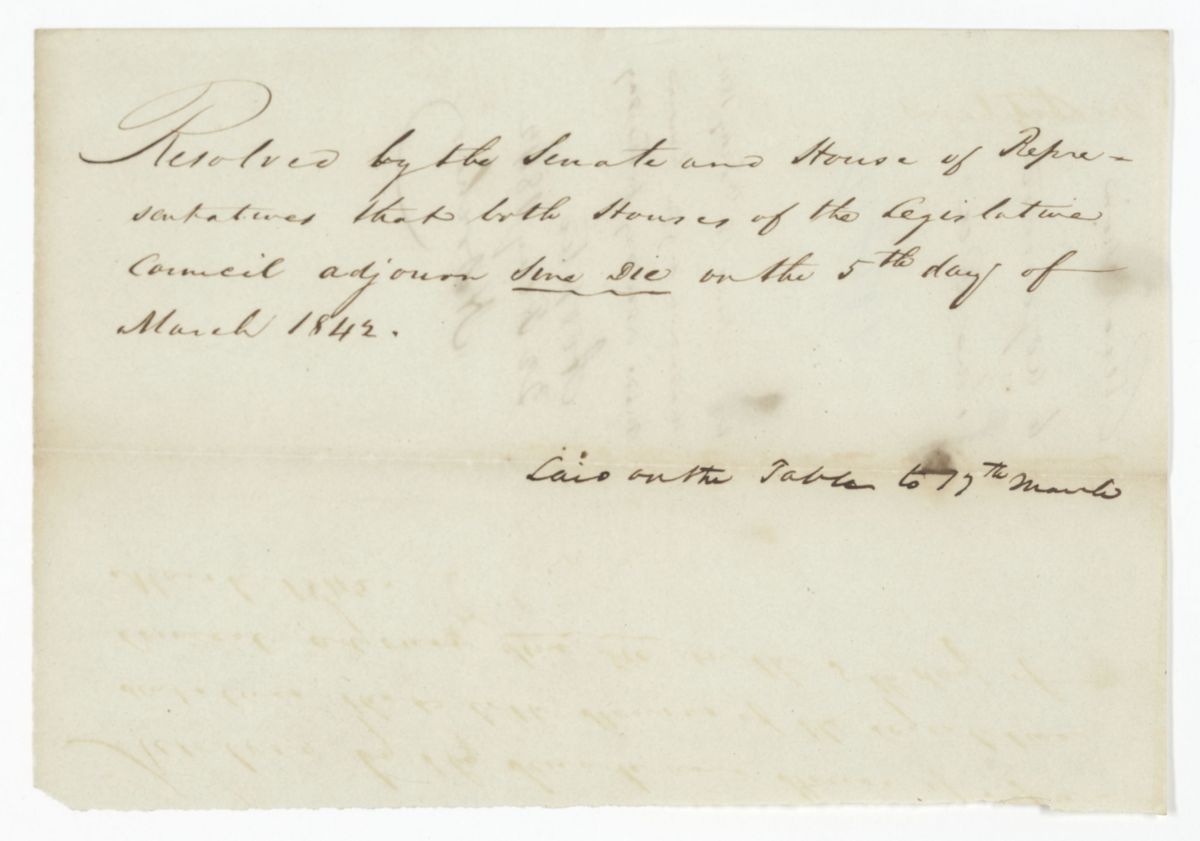 Resolved by the Senate and House of Repre-
sentatives that both Houses of the Legislative
Council adjourn Sine Die on the 5th day of
March 1842.
Laid on the Table to 17th March